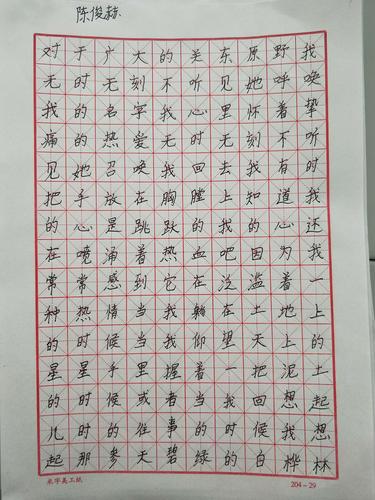 陈俊赫
对于广大的关东原野我
无时无刻不听见她呼唤
我的名字我心里怀着挚
痛的热爱无时无刻不听
见她召唤我回去我有时
把手放在胸膛上知道我
的心是跳跃的我的心还
在喷涌着热血吧因为我
常常感到它在泛滥着一
种热情当我躺在土地上
的时候当我仰望天上的
星星手里握着一把泥土
的时候或者当我回想起
儿时的往事的时候我想
起那参天碧绿的白桦林
米字美工纸
204-29